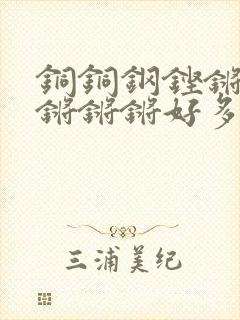 銅銅鋼鏗鏘
鏘鏘鏘好多
三浦美纪